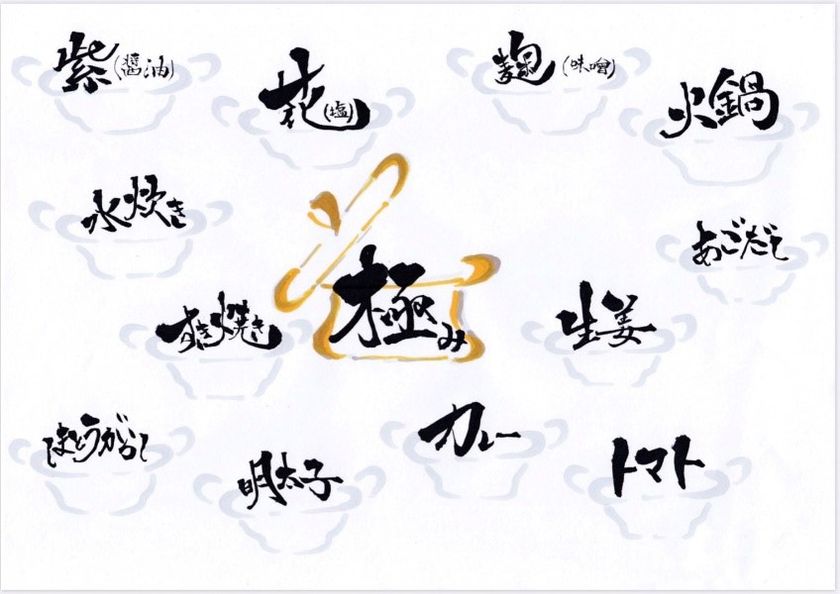 紫(醤油)
花(塩)
麹(味噌)
火鍋
水炊き
あごだし
極み
すき焼き
生姜
しまとうがらし
明太子
カレー
トマト